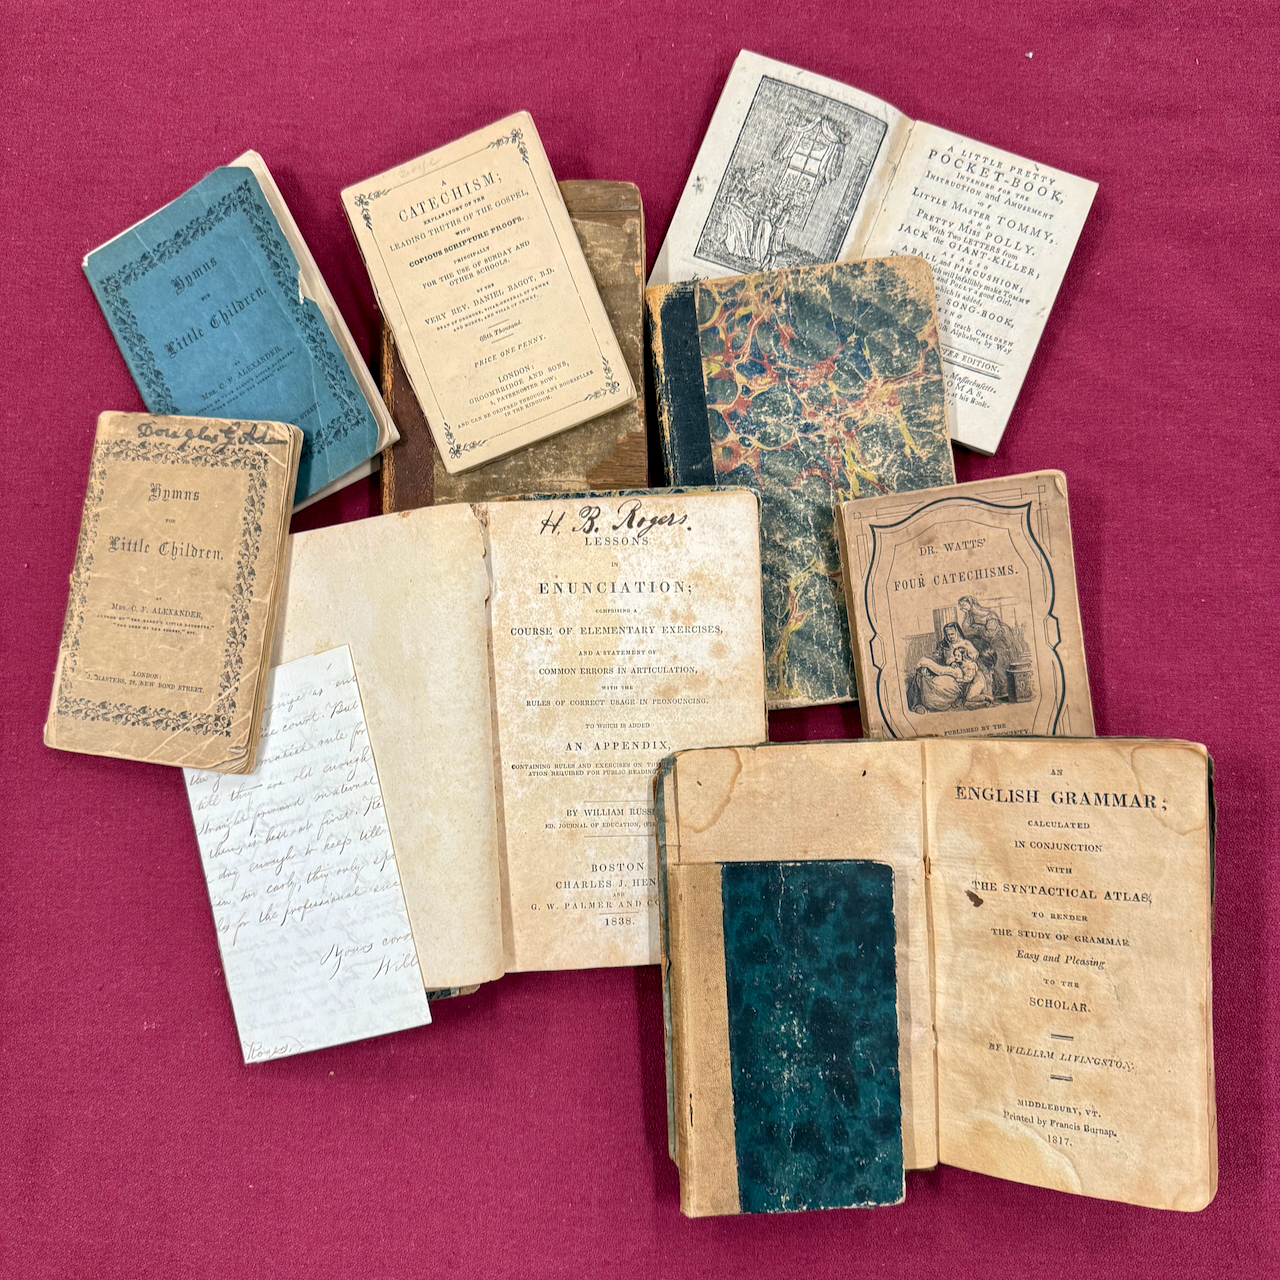 Hymns
FOR
Little Children.
BY
MRS. C. F. ALEXANDER,
A
CATECHISM;
EXPLANATORY OF THE
LEADING TRUTHS OF THE GOSPEL,
WITH
COPIOUS SCRIPTURE PROOFS.
PRINCIPALLY
FOR THE USE OF SUNDAY AND
OTHER SCHOOLS.
BY THE
VERY REV. DANIEL BAGOT, B.D.
DEAN OF DROMORE, VICAR-GENERAL OF NEWRY
AND MORNE, AND VICAR OF NEWRY.
Thousand.
PRICE ONE PENNY.
LONDON:
GROOMBRIDGE AND SONS,
5, PATERNOSTER ROW;
AND CAN BE ORDERED THROUGH ANY BOOKSELLER
IN THE KINGDOM.
A LITTLE PRETTY
POCKET-BOOK,
INTENDED FOR THE
INSTRUCTION and AMUSEMENT
OF
LITTLE MASTER TOMMY,
AND
PRETTY MISS POLLY.
With Two LETTERS from
JACK the GIANT-KILLER;
AS ALSO
A BALL and PINCUSHION;
which will infallibly make TOMMY
and POLLY a good Girl.
which is added,
SONG-BOOK,
to teach CHILDREN
Alphabet, by Way
EDITION.
Massachusetts,
at his Book-
Douglas
Hymns
FOR
Little Children.
BY
MRS. C. F. ALEXANDER,
AUTHOR OF "THE BARON'S LITTLE DAUGHTER,"
"THE LORD OF THE FOREST," ETC.
LONDON:
J. MASTERS, 78, NEW BOND STREET.
H. B. Rogers.
LESSONS
IN
ENUNCIATION;
COMPRISING A
COURSE OF ELEMENTARY EXERCISES,
AND A STATEMENT OF
COMMON ERRORS IN ARTICULATION,
WITH THE
RULES OF CORRECT USAGE IN PRONOUNCING.
TO WHICH IS ADDED
AN APPENDIX,
CONTAINING RULES AND EXERCISES ON
ATION REQUIRED FOR PUBLIC READING
BY WILLIAM RUSS
ED. JOURNAL OF EDUCATION,
BOSTON
CHARLES J. HEN
AND
G. W. PALMER AND CO
1838.
DR. WATTS'
FOUR CATECHISMS.
PUBLISHED BY THE
SOCIETY.
court. But
rule for
till they are old enough
straight forward maternal
thing is best at first. The
enough to keep till
too early, they only
for the professional
Yours
Will
Rogers,
AN
ENGLISH GRAMMAR;
CALCULATED
IN CONJUNCTION
WITH
THE SYNTACTICAL ATLAS,
TO RENDER
THE STUDY OF GRAMMAR
Easy and Pleasing
TO THE
SCHOLAR.
BY WILLIAM LIVINGSTON.
MIDDLEBURY, VT.
Printed by Francis Burnap.
1817.